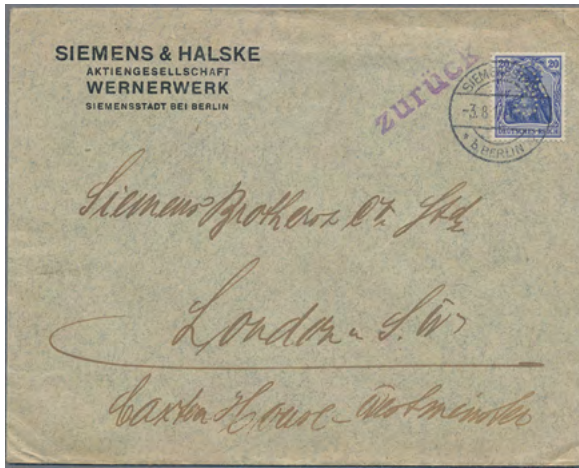 SIEMENS & HALSKE
AKTIENGESELLSCHAFT
WERNERWERK
SIEMENSSTADT BEI BERLIN
zurück
20 20
SIEMENS
-3.8.
* b. BERLIN
DEUTSCHES REICH
Siemens Brothers Co. Ltd
London S.W
Caxton House - Westminster